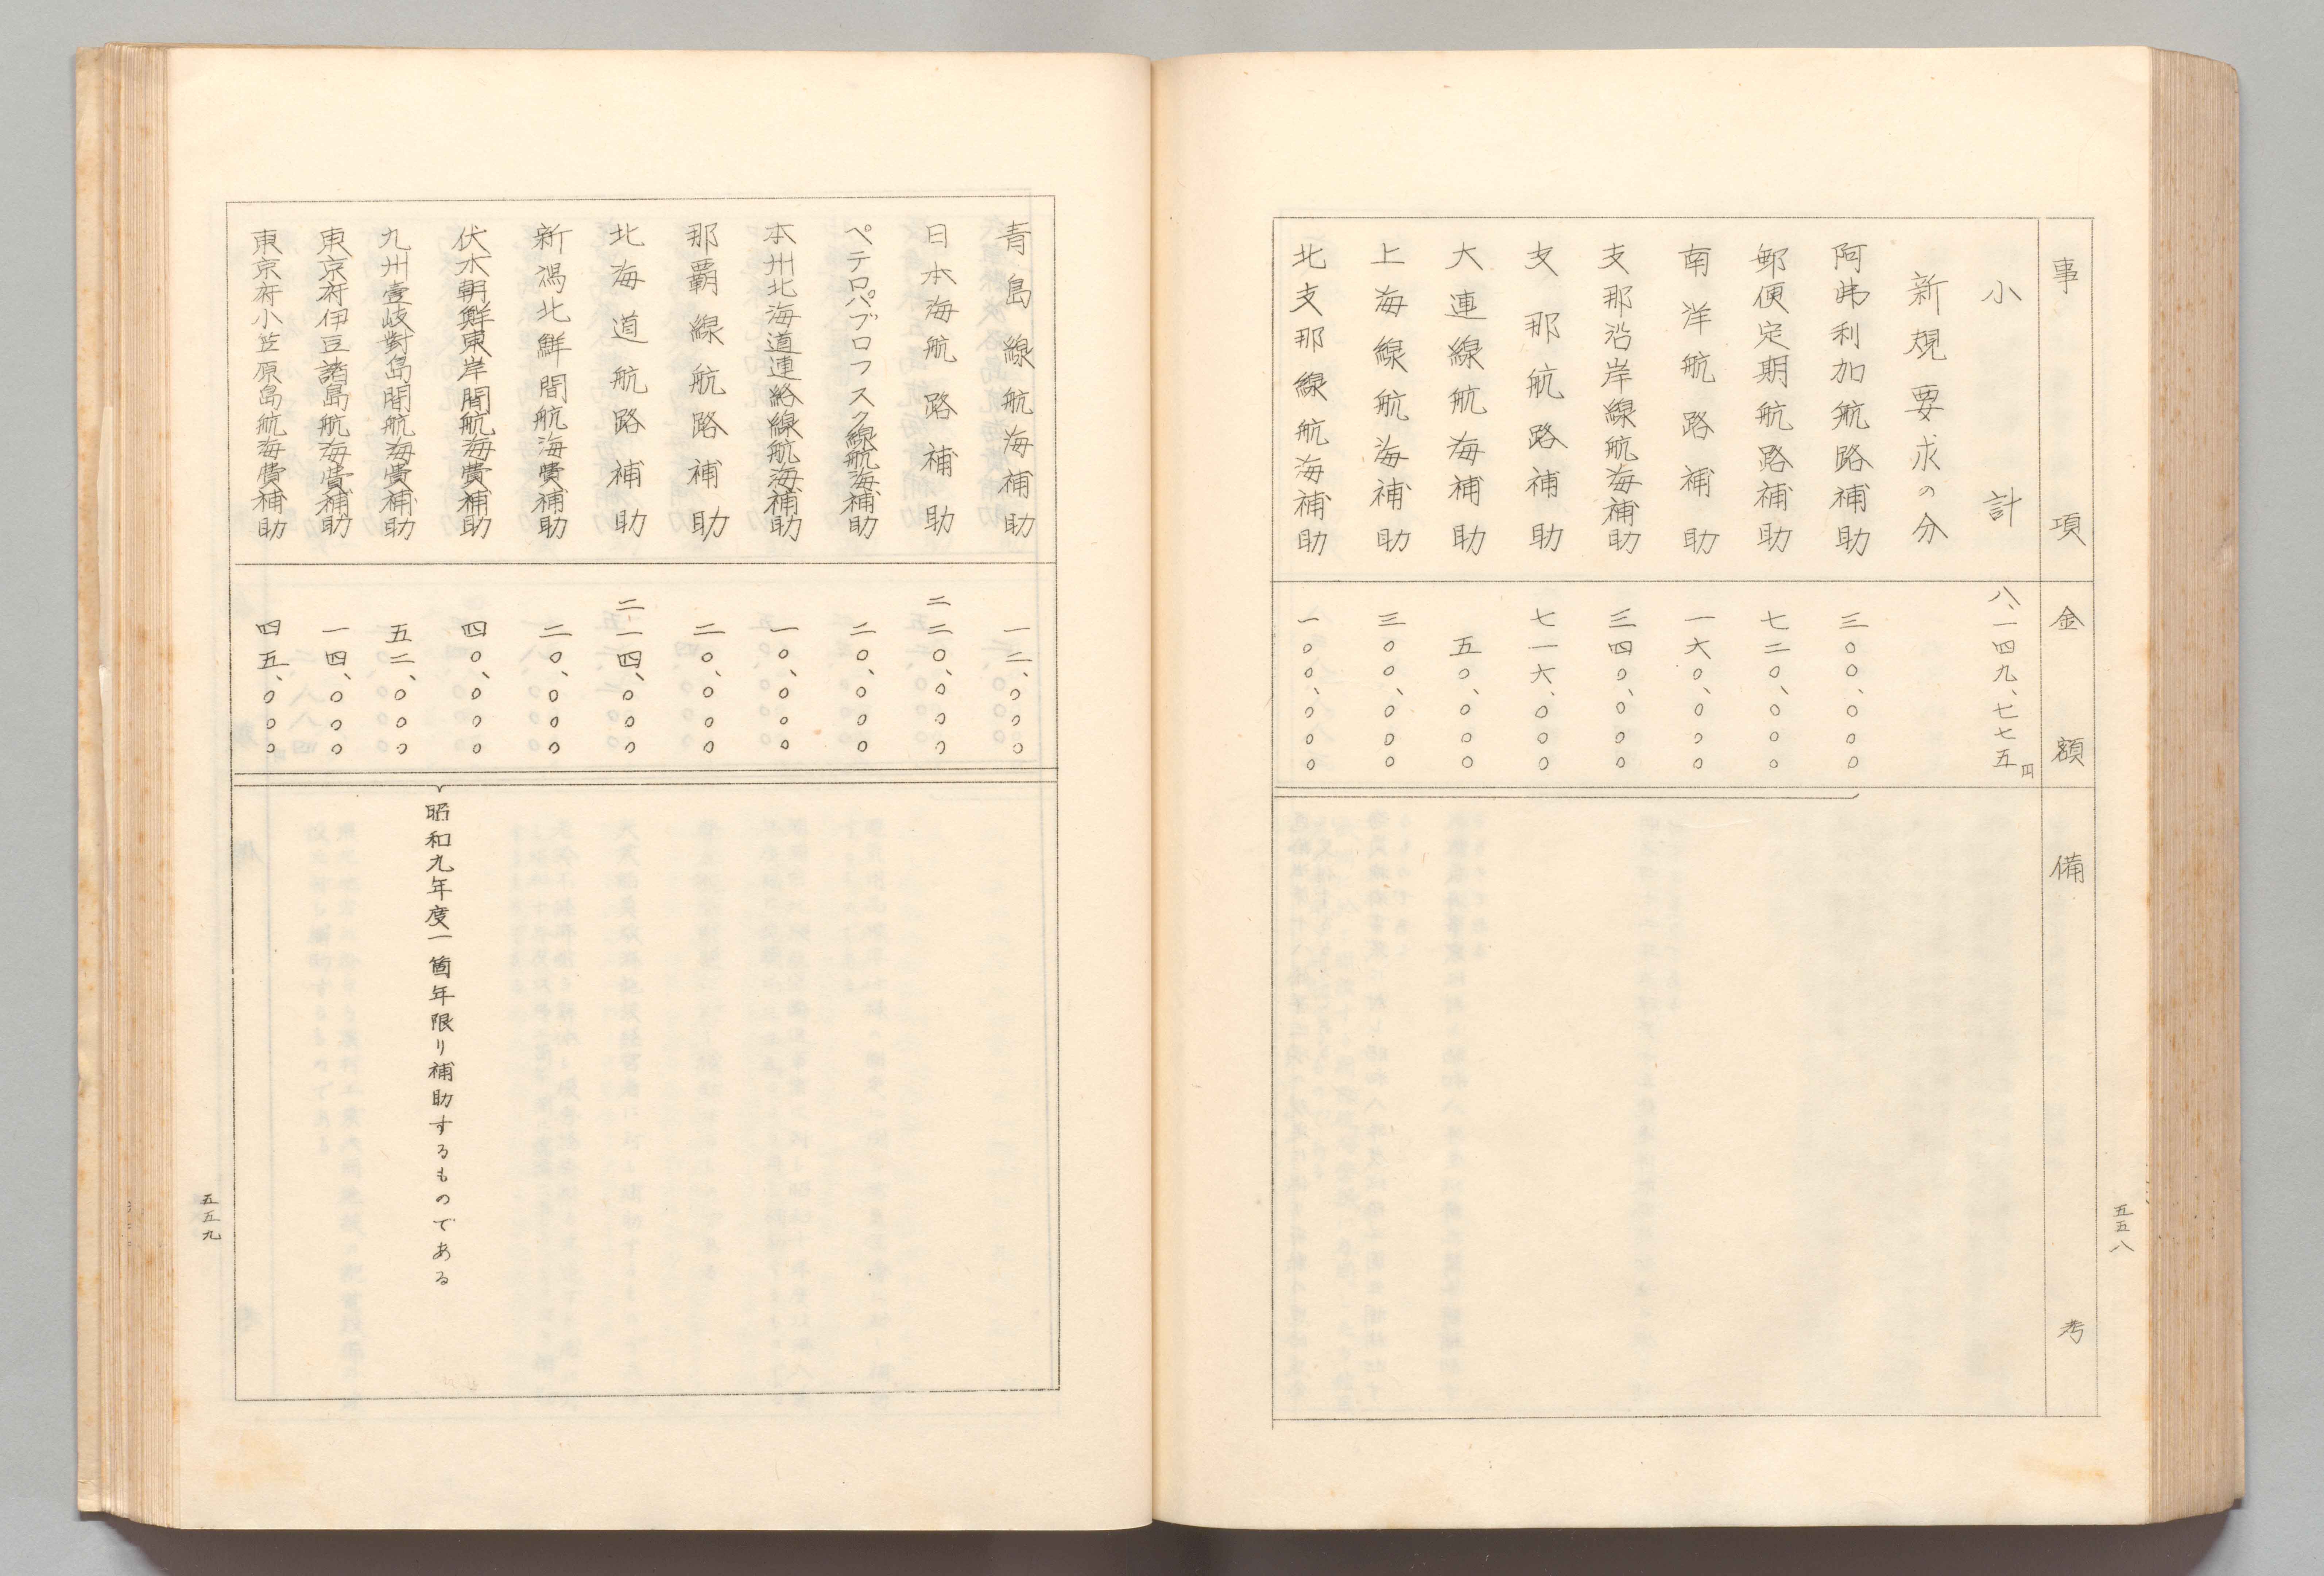 事項 金額 備考
小計 八、一四九、七七五円
新規要求の分
阿弗利加航路補助 三〇〇、〇〇〇
郵便定期航路補助 七二〇、〇〇〇
南洋航路補助 一六〇、〇〇〇
支那沿岸線航海補助 三四〇、〇〇〇
支那航路補助 七一六、〇〇〇
大連線航海補助 五〇、〇〇〇
上海線航海補助 三〇〇、〇〇〇
北支那線航海補助 一〇〇、〇〇〇
五五八
青島線航海補助 一二、〇〇〇
日本海航路補助 二二〇、〇〇〇
ペテロパブロフスク線航海補助 二〇、〇〇〇
本州北海道連絡線航海補助 一〇、〇〇〇
那覇線航路補助 二〇、〇〇〇
北海道航路補助 二一四、〇〇〇
新潟北鮮間航海費補助 二〇、〇〇〇
伏木朝鮮東岸間航海費補助 四〇、〇〇〇
九州壹岐對島間航海費補助 五二、〇〇〇
東京府伊豆諸島航海費補助 一四、〇〇〇
東京府小笠原島航海費補助 四五、〇〇〇
昭和九年度一箇年限り補助するものである
五五九